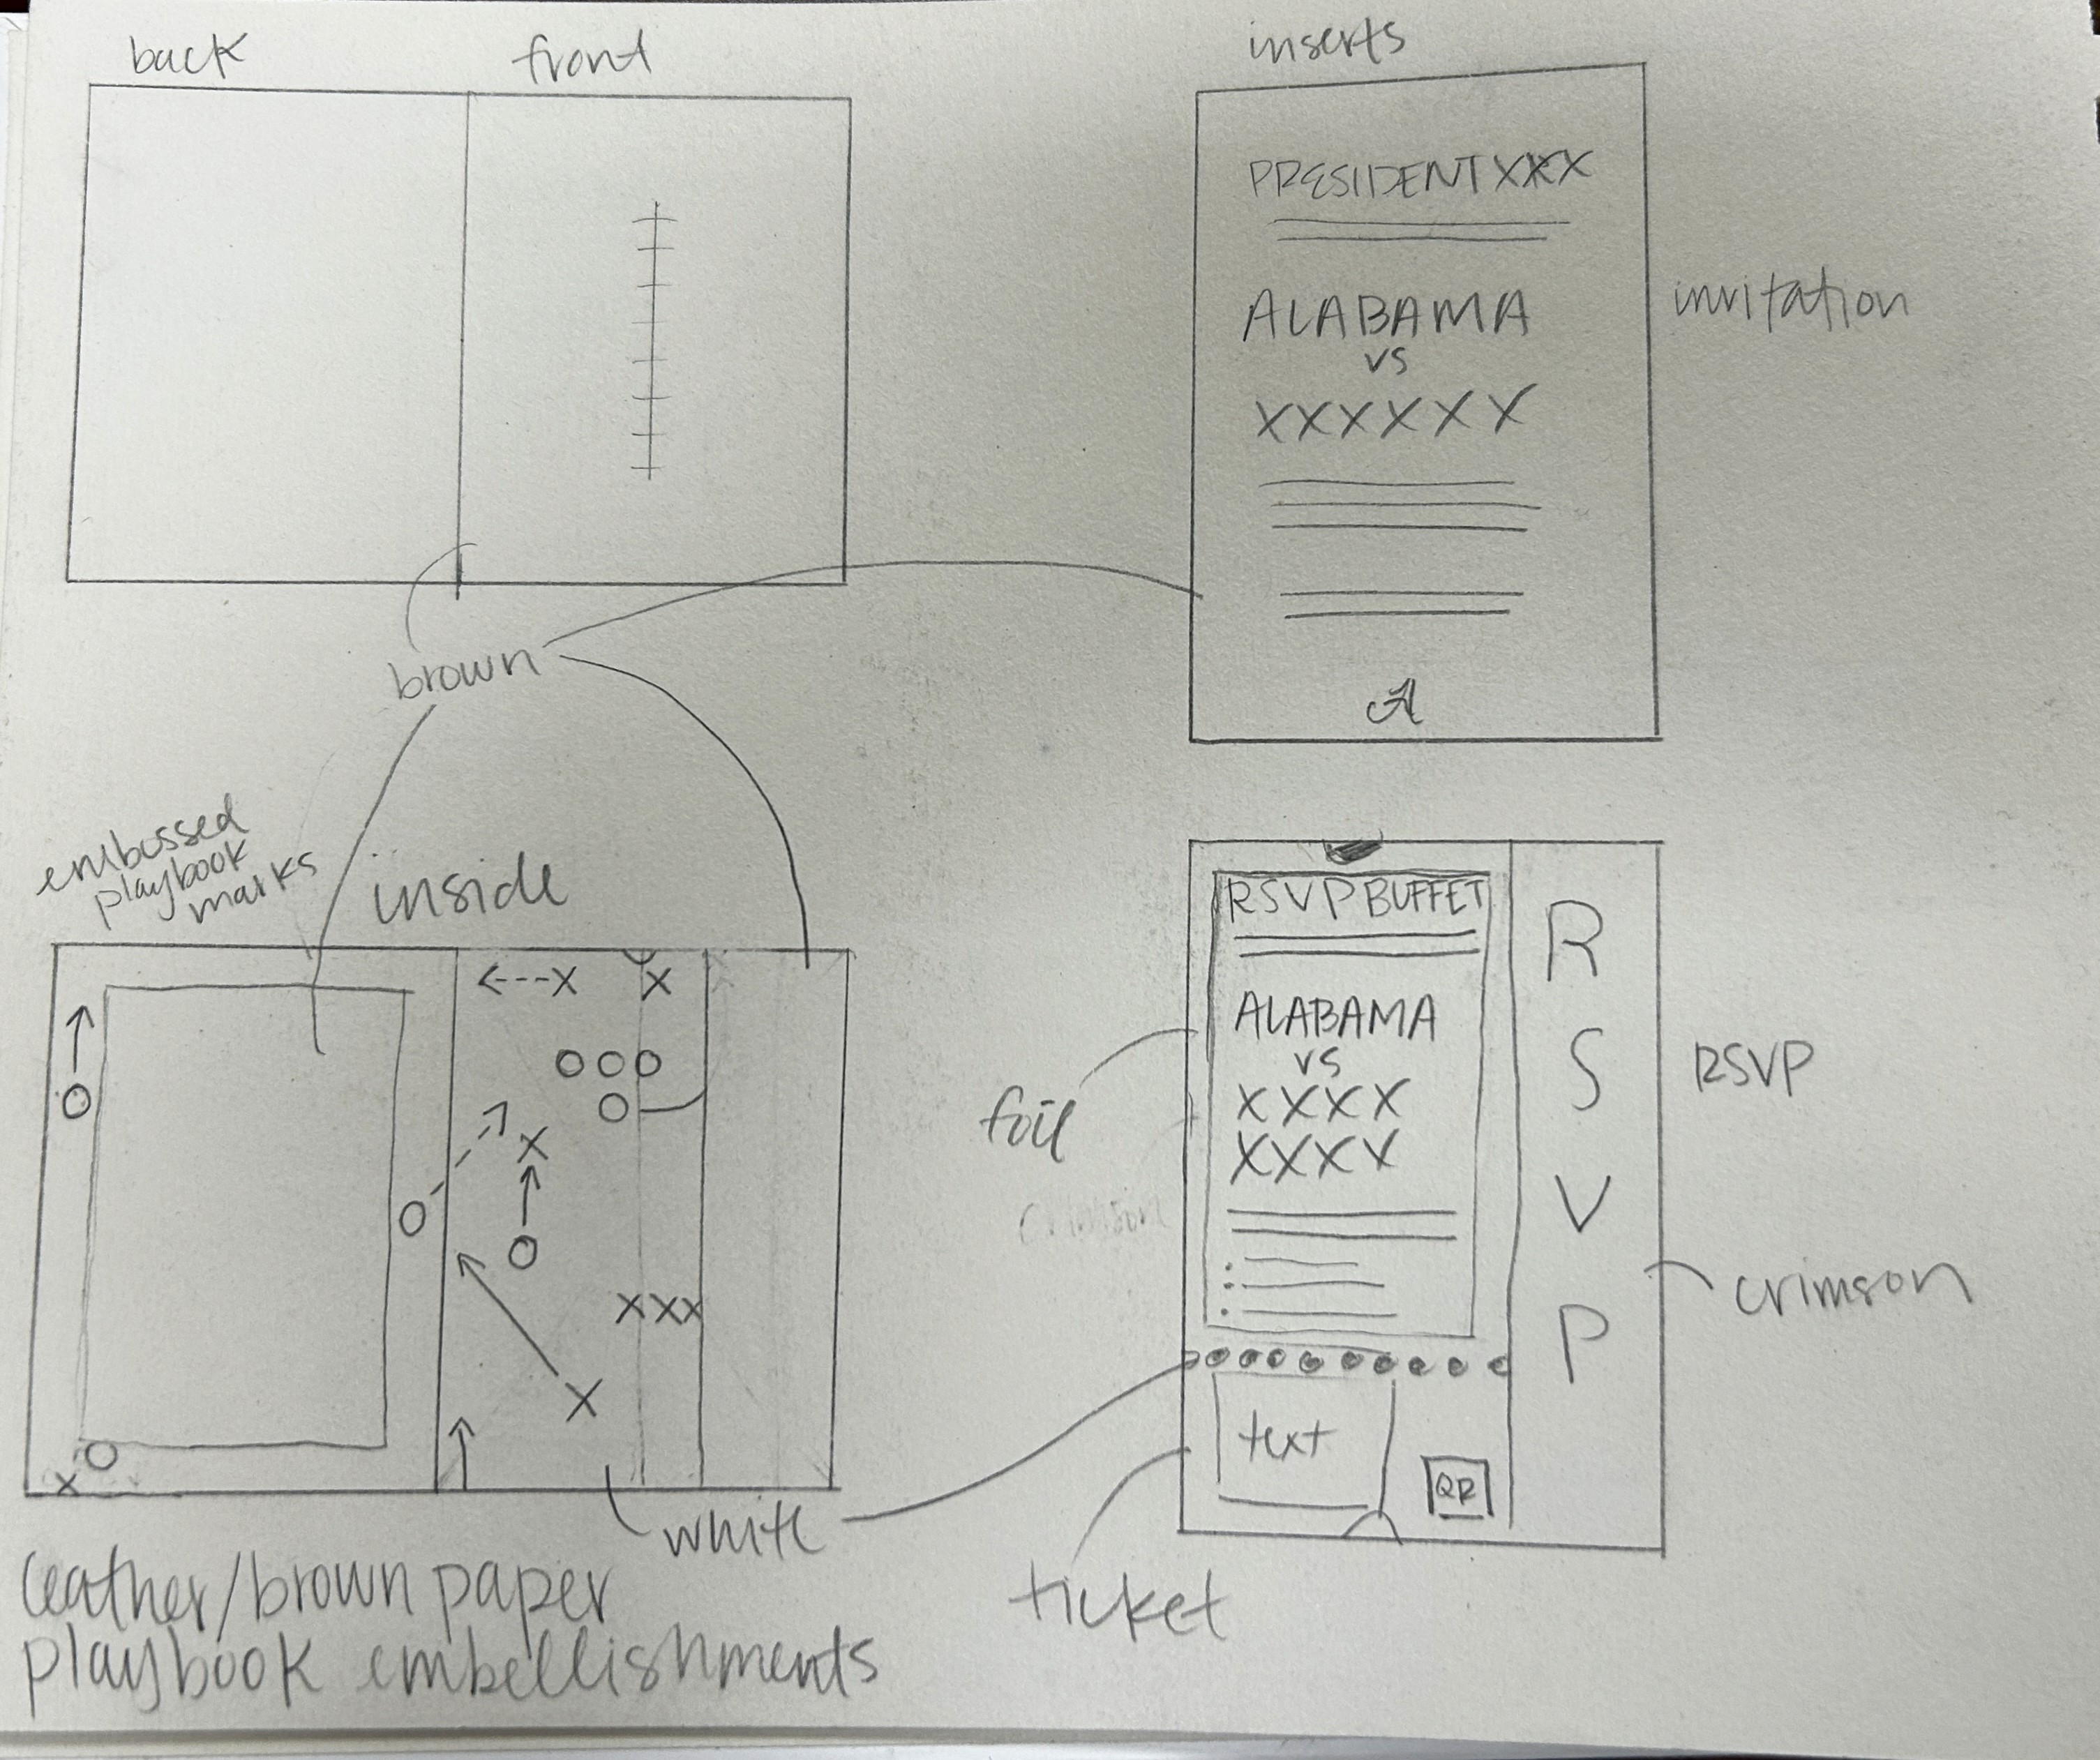 back
front
brown
embossed
playbook
marks
inside
<---X
X
OOO
O
O
X
O
O
XXX
X
O
X
white
leather/brown paper
playbook embellishments
inserts
PRESIDENT XXX
ALABAMA
vs
XXXXXX
A
invitation
RSVP BUFFET
ALABAMA
VS
XXXX
XXXX
text
QR
R
S
V
P
RSVP
foil
crimson
crimson
ticket